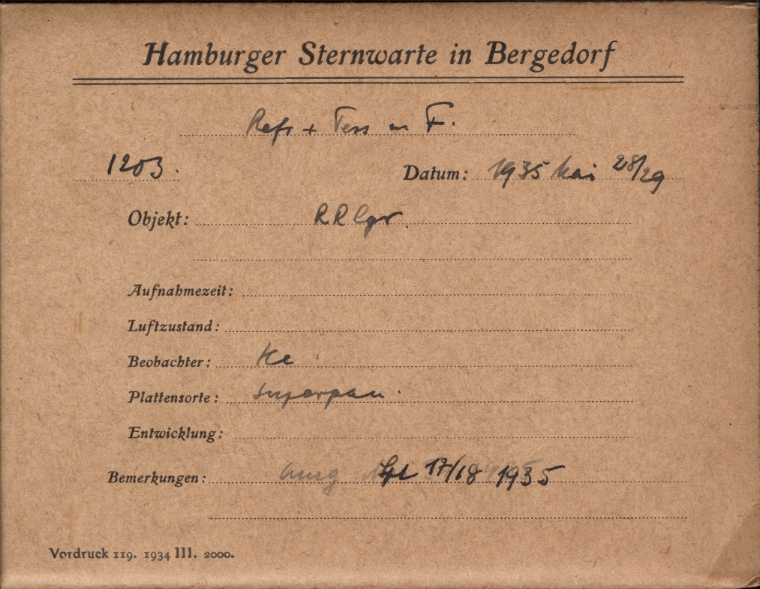 Hamburger Sternwarte in Bergedorf
Refr + Tess m F.
1203. Datum: 1935 Mai 28/29
Objekt: RR Lyr.
Aufnahmezeit:
Luftzustand:
Beobachter: Ke
Plattensorte: Superpan.
Entwicklung:
Bemerkungen: ausg 17/18 1935
Vordruck 119. 1934 III. 2000.